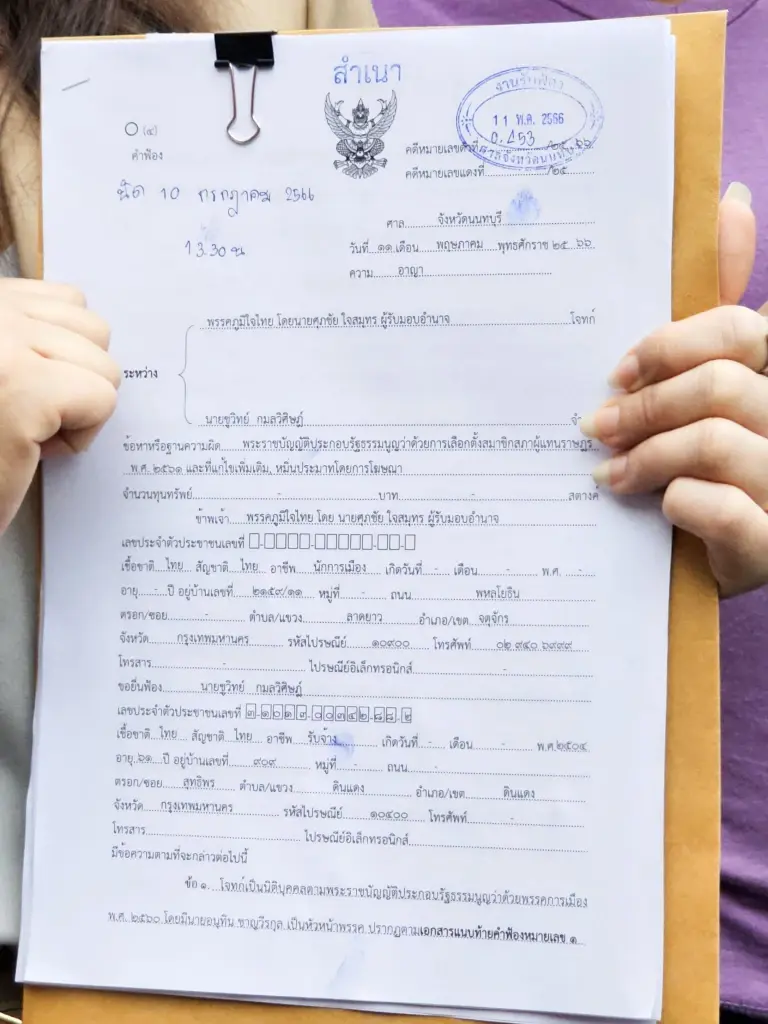 สำเนา
งานรับฟ้อง
11 พ.ค. 2566
อ.453
ศาลจังหวัดนนทบุรี
(๔)
คำฟ้อง
คดีหมายเลขดำที่ /๒๕ ๖๖
คดีหมายเลขแดงที่ /๒๕
นัด 10 กรกฎาคม 2566
13.30 น
ศาล จังหวัดนนทบุรี
วันที่ ๑๑ เดือน พฤษภาคม พุทธศักราช ๒๕ ๖๖
ความ อาญา
พรรคภูมิใจไทย โดยนายศุภชัย ใจสมุทร ผู้รับมอบอำนาจ โจทก์
ระหว่าง
นายชูวิทย์ กมลวิศิษฎ์
ข้อหาหรือฐานความผิด พระราชบัญญัติประกอบรัฐธรรมนูญว่าด้วยการเลือกตั้งสมาชิกสภาผู้แทนราษฎร
พ.ศ. ๒๕๖๑ และที่แก้ไขเพิ่มเติม, หมิ่นประมาทโดยการโฆษณา
จำนวนทุนทรัพย์ - บาท - สตางค์
ข้าพเจ้า พรรคภูมิใจไทย โดย นายศุภชัย ใจสมุทร ผู้รับมอบอำนาจ
เลขประจำตัวประชาชนเลขที่
เชื้อชาติ ไทย สัญชาติ ไทย อาชีพ นักการเมือง เกิดวันที่ - เดือน - พ.ศ. -
อายุ - ปี อยู่บ้านเลขที่ ๒๑๕๙/๑๑ หมู่ที่ - ถนน พหลโยธิน
ตรอก/ซอย - ตำบล/แขวง ลาดยาว อำเภอ/เขต จตุจักร
จังหวัด กรุงเทพมหานคร รหัสไปรษณีย์ ๑๐๙๐๐ โทรศัพท์ ๐๒ ๙๔๐ ๖๙๙๙
โทรสาร - ไปรษณีย์อิเล็กทรอนิกส์ -
ขอยื่นฟ้อง นายชูวิทย์ กมลวิศิษฎ์
เลขประจำตัวประชาชนเลขที่ ๓-๑๐๑๓-๐๐๓๔๒-๘๘-๒
เชื้อชาติ ไทย สัญชาติ ไทย อาชีพ รับจ้าง เกิดวันที่ - เดือน - พ.ศ. ๒๕๐๔
อายุ ๖๑ ปี อยู่บ้านเลขที่ ๙๐๙ หมู่ที่ - ถนน -
ตรอก/ซอย สุทธิพร ตำบล/แขวง ดินแดง อำเภอ/เขต ดินแดง
จังหวัด กรุงเทพมหานคร รหัสไปรษณีย์ ๑๐๔๐๐ โทรศัพท์ -
โทรสาร - ไปรษณีย์อิเล็กทรอนิกส์ -
มีข้อความตามที่จะกล่าวต่อไปนี้
ข้อ ๑. โจทก์เป็นนิติบุคคลตามพระราชบัญญัติประกอบรัฐธรรมนูญว่าด้วยพรรคการเมือง
พ.ศ. ๒๕๖๐ โดยมีนายอนุทิน ชาญวีรกูล เป็นหัวหน้าพรรค ปรากฏตามเอกสารแนบท้ายคำฟ้องหมายเลข ๑